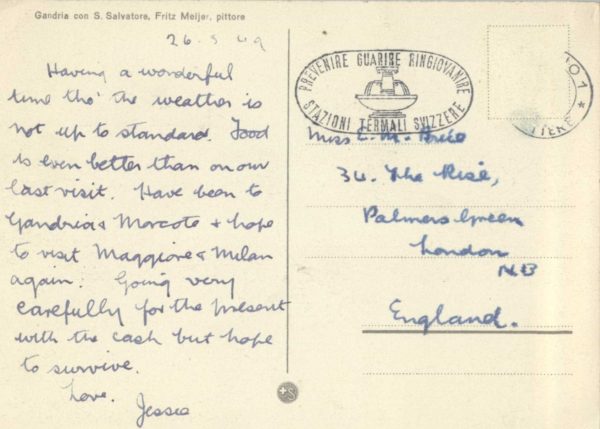 Gandria con S. Salvatore, Fritz Meijer, pittore
26-5 49
Having a wonderful
time tho' the weather is
not up to standard. Food
is even better than on our
last visit. Have been to
Gandria & Morcote & hope
to visit Maggiore & Milan
again. Going very
carefully for the present
with the cash but hope
to survive.
Love.
Jessie
PREVENIRE GUARIRE RINGIOVANIRE
STAZIONI TERMALI SVIZZERE
Miss E. M.
34. The Rise,
Palmers Green
London
England.